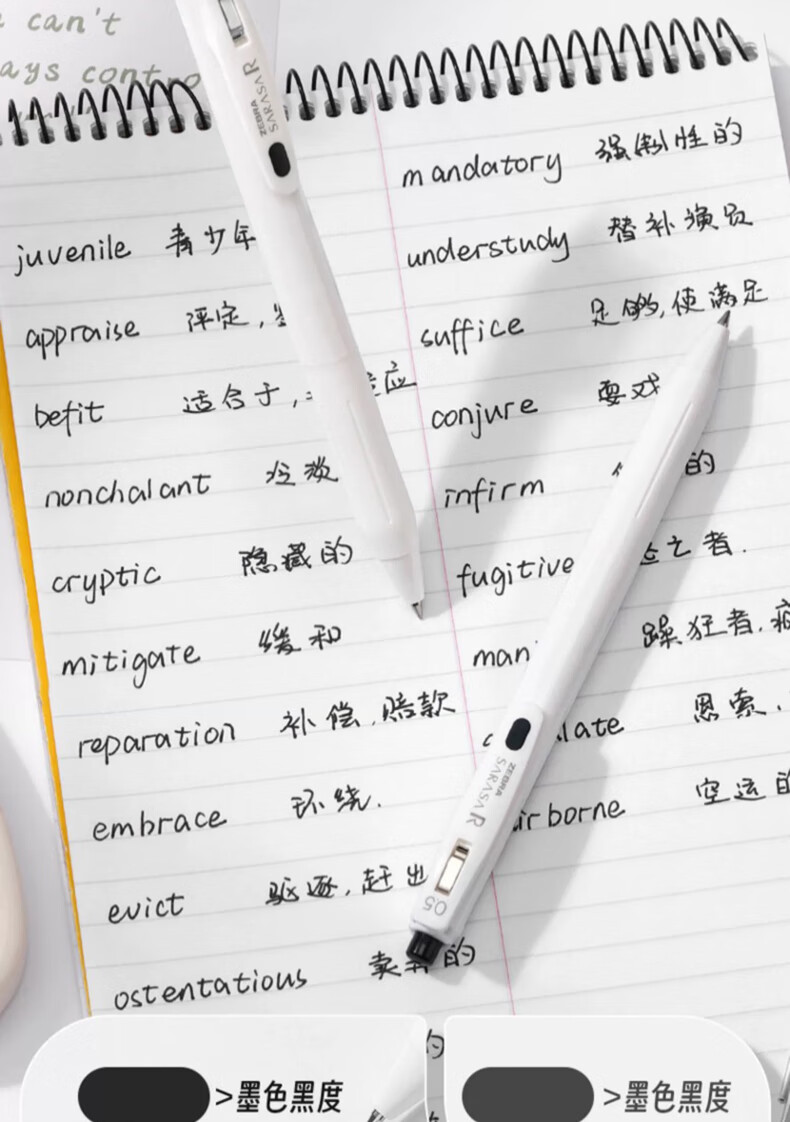 can't
ays contro
ZEBRA
SARASA R
juvenile 青少年
appraise 评定,
befit 适合于, 应
nonchalant 冷淡
cryptic 隐藏的
mitigate 缓和
reparation 补偿,赔款
embrace 环绕.
evict 驱逐,赶出
ostentatious 卖 的
的
mandatory 强制性的
understudy 替补演员
suffice 足够,使满足
conjure 耍戏
infirm 的
fugitive 亡之者.
man 躁狂者,
late 思索,
airborne 空运的
ZEBRA
SARASA R
0.5
>墨色黑度
>墨色黑度